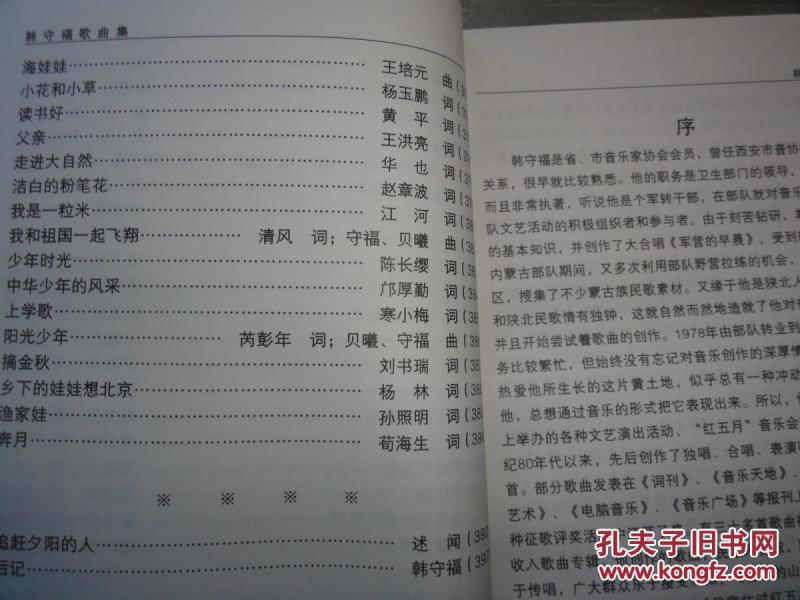 韩守福歌曲集
海娃娃 王培元 曲
小花和小草 杨玉鹏 词
读书好 黄平 词
父亲 王洪亮 词
走进大自然 华也 词
洁白的粉笔花 赵章波 词
我是一粒米 江河 词
我和祖国一起飞翔 清风 词；守福、贝曦 曲
少年时光 陈长缨 词
中华少年的风采 邝厚勤 词
上学歌 寒小梅 词
阳光少年 芮彭年 词；贝曦、守福 曲
摘金秋 刘书瑞 词
乡下的娃娃想北京 杨林 词
渔家娃 孙照明 词
奔月 荀海生 词
※ ※ ※ ※
追赶夕阳的人 述闻
后记 韩守福
序
韩守福是省、市音乐家协会会员，曾任西安市音协
关系，很早就比较熟悉。他的职务是卫生部门的领导，
而且非常执著，听说他是个军转干部，在部队就对音乐
队文艺活动的积极组织者和参与者。由于刻苦钻研，
的基本知识，并创作了大合唱《军营的早晨》，受到
内蒙古部队期间，又多次利用部队野营拉练的机会，
区，搜集了不少蒙古族民歌素材。又缘于他是陕北人
和陕北民歌情有独钟，这就自然而然地造就了他对
并且开始尝试着歌曲的创作。1978年由部队转业到
务比较繁忙，但始终没有忘记对音乐创作的深厚情
热爱他所生长的这片黄土地，似乎总有一种冲动
他，总想通过音乐的形式把它表现出来。所以，
上举办的各种文艺演出活动、“红五月”音乐会
纪80年代以来，先后创作了独唱、合唱、表演
首。部分歌曲发表在《词刊》、《音乐天地》、
艺术》、《电脑音乐》、《音乐广场》等报刊上
种征歌评奖活
收入歌曲专辑
于传唱，广大群众乐于接受
孔夫子旧书网
www.kongfz.com